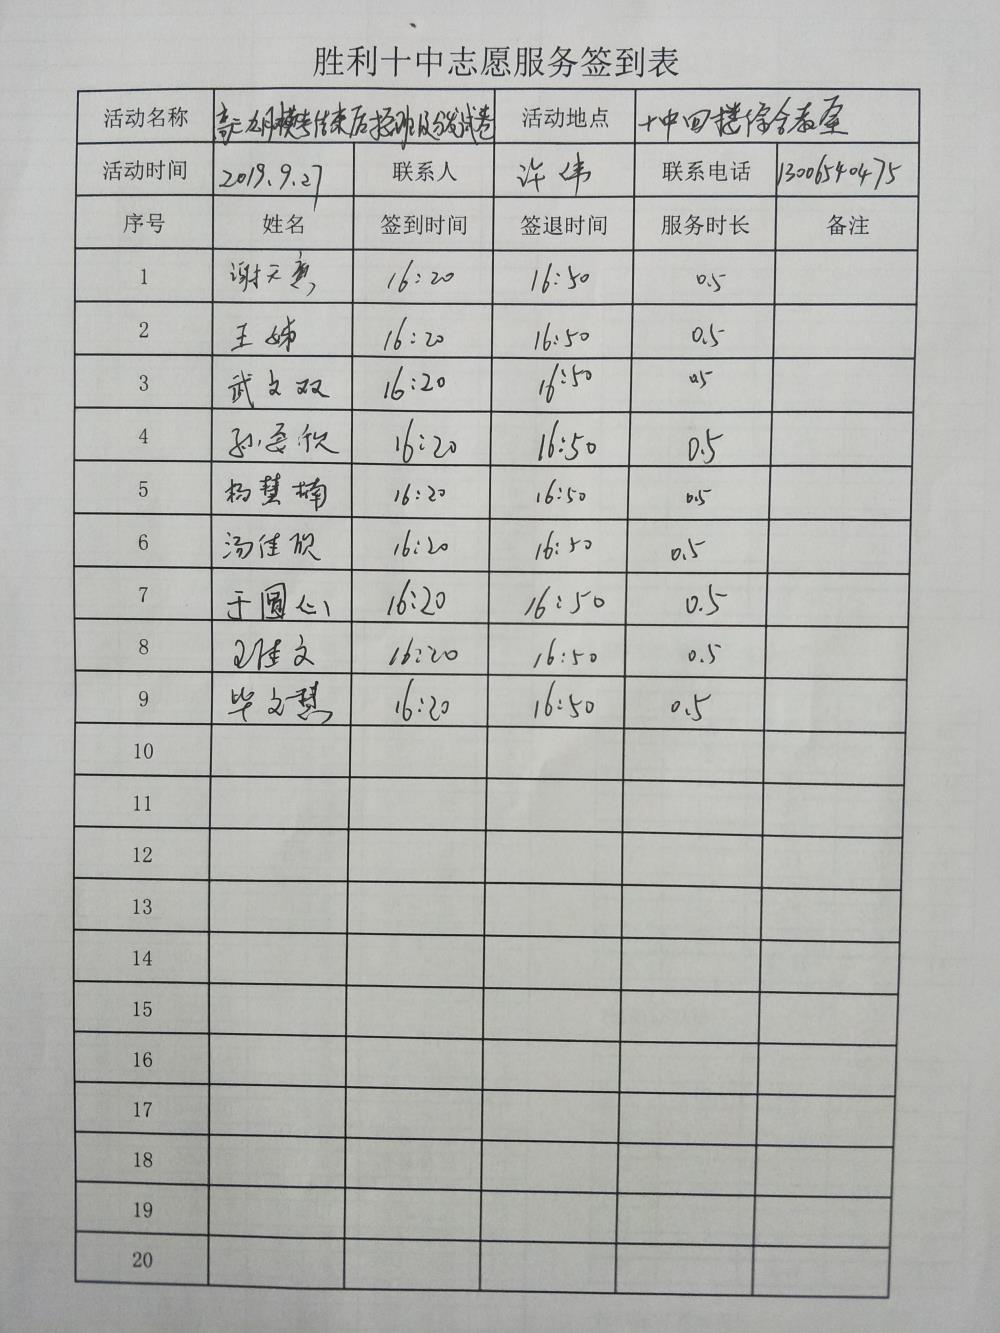 胜利十中志愿服务签到表
活动名称 高三九月模考结束后按班级分发试卷 活动地点 十中四楼综合教室
活动时间 2019.9.27 联系人 许伟 联系电话 13006540475
序号 姓名 签到时间 签退时间 服务时长 备注
1 谢天 16:20 16:50 0.5
2 王娣 16:20 16:50 0.5
3 武文双 16:20 16:50 0.5
4 孙 欣 16:20 16:50 0.5
5 杨慧楠 16:20 16:50 0.5
6 汤佳欣 16:20 16:50 0.5
7 于圆 16:20 16:50 0.5
8 王佳文 16:20 16:50 0.5
9 毕文慧 16:20 16:50 0.5
10
11
12
13
14
15
16
17
18
19
20